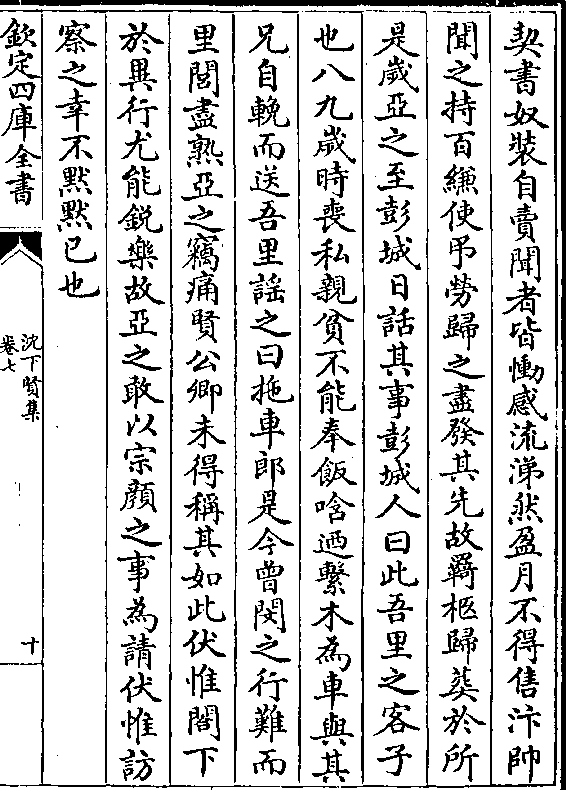 契書奴裝自賣聞者皆慟感流涕然盈月不得售汴帥
聞之持百縑使弔勞歸之盡發其先故羇柩歸葬於所
是歲亞之至彭城日話其事彭城人曰此吾里之客子
也八九歲時喪私親貧不能奉飯唅迺繫木為車與其
兄自輓而送吾里謡之曰拖車郎是今曾閔之行難而
里閭盡熟亞之竊痛賢公卿未得稱其如此伏惟閤下
於異行尤能鋭樂故亞之敢以宗顔之事為請伏惟訪
察之幸不默默已也
欽定四庫全書
沈下賢集
卷七
十